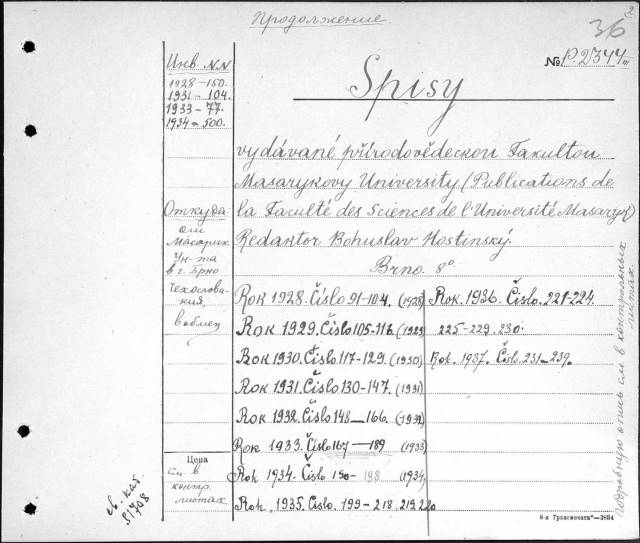 Продолжение.
36
Инв. N.N
1928-150.
1931-104.
1933-77.
1934-500.
№ P.2344
Spisy
vydávané přírodovědeckou Fakultou
Masarykovy University. (Publications de
la Faculté des Sciences de l'Université Masaryk)
Redaktor Bohuslav Hostinský.
Brno. 8°
Откуда
от
Масарик.
Ун-та
в г. Брно
Чехослова-
кия,
в обмен
Rok 1928. Číslo 91-104. (1928)
Rok 1929. Číslo 105-116. (1929)
Rok 1930. Číslo 117-129. (1930)
Rok 1931. Číslo 130-147. (1931)
Rok 1932. Číslo 148-166. (1932)
Rok 1933. Číslo 167-189 (1933)
Rok 1934. Číslo 190-198 (1934)
Rok. 1935. Číslo. 199-218. 219. 220
Rok. 1936. Číslo. 221-224.
225-229. 230.
Rok. 1937. Čislo. 231-239.
Цена
см. в
контр.
листах.
св. кат.
31708
Подробную опись см. в контрольных листах.
8-я Транспечати—3884